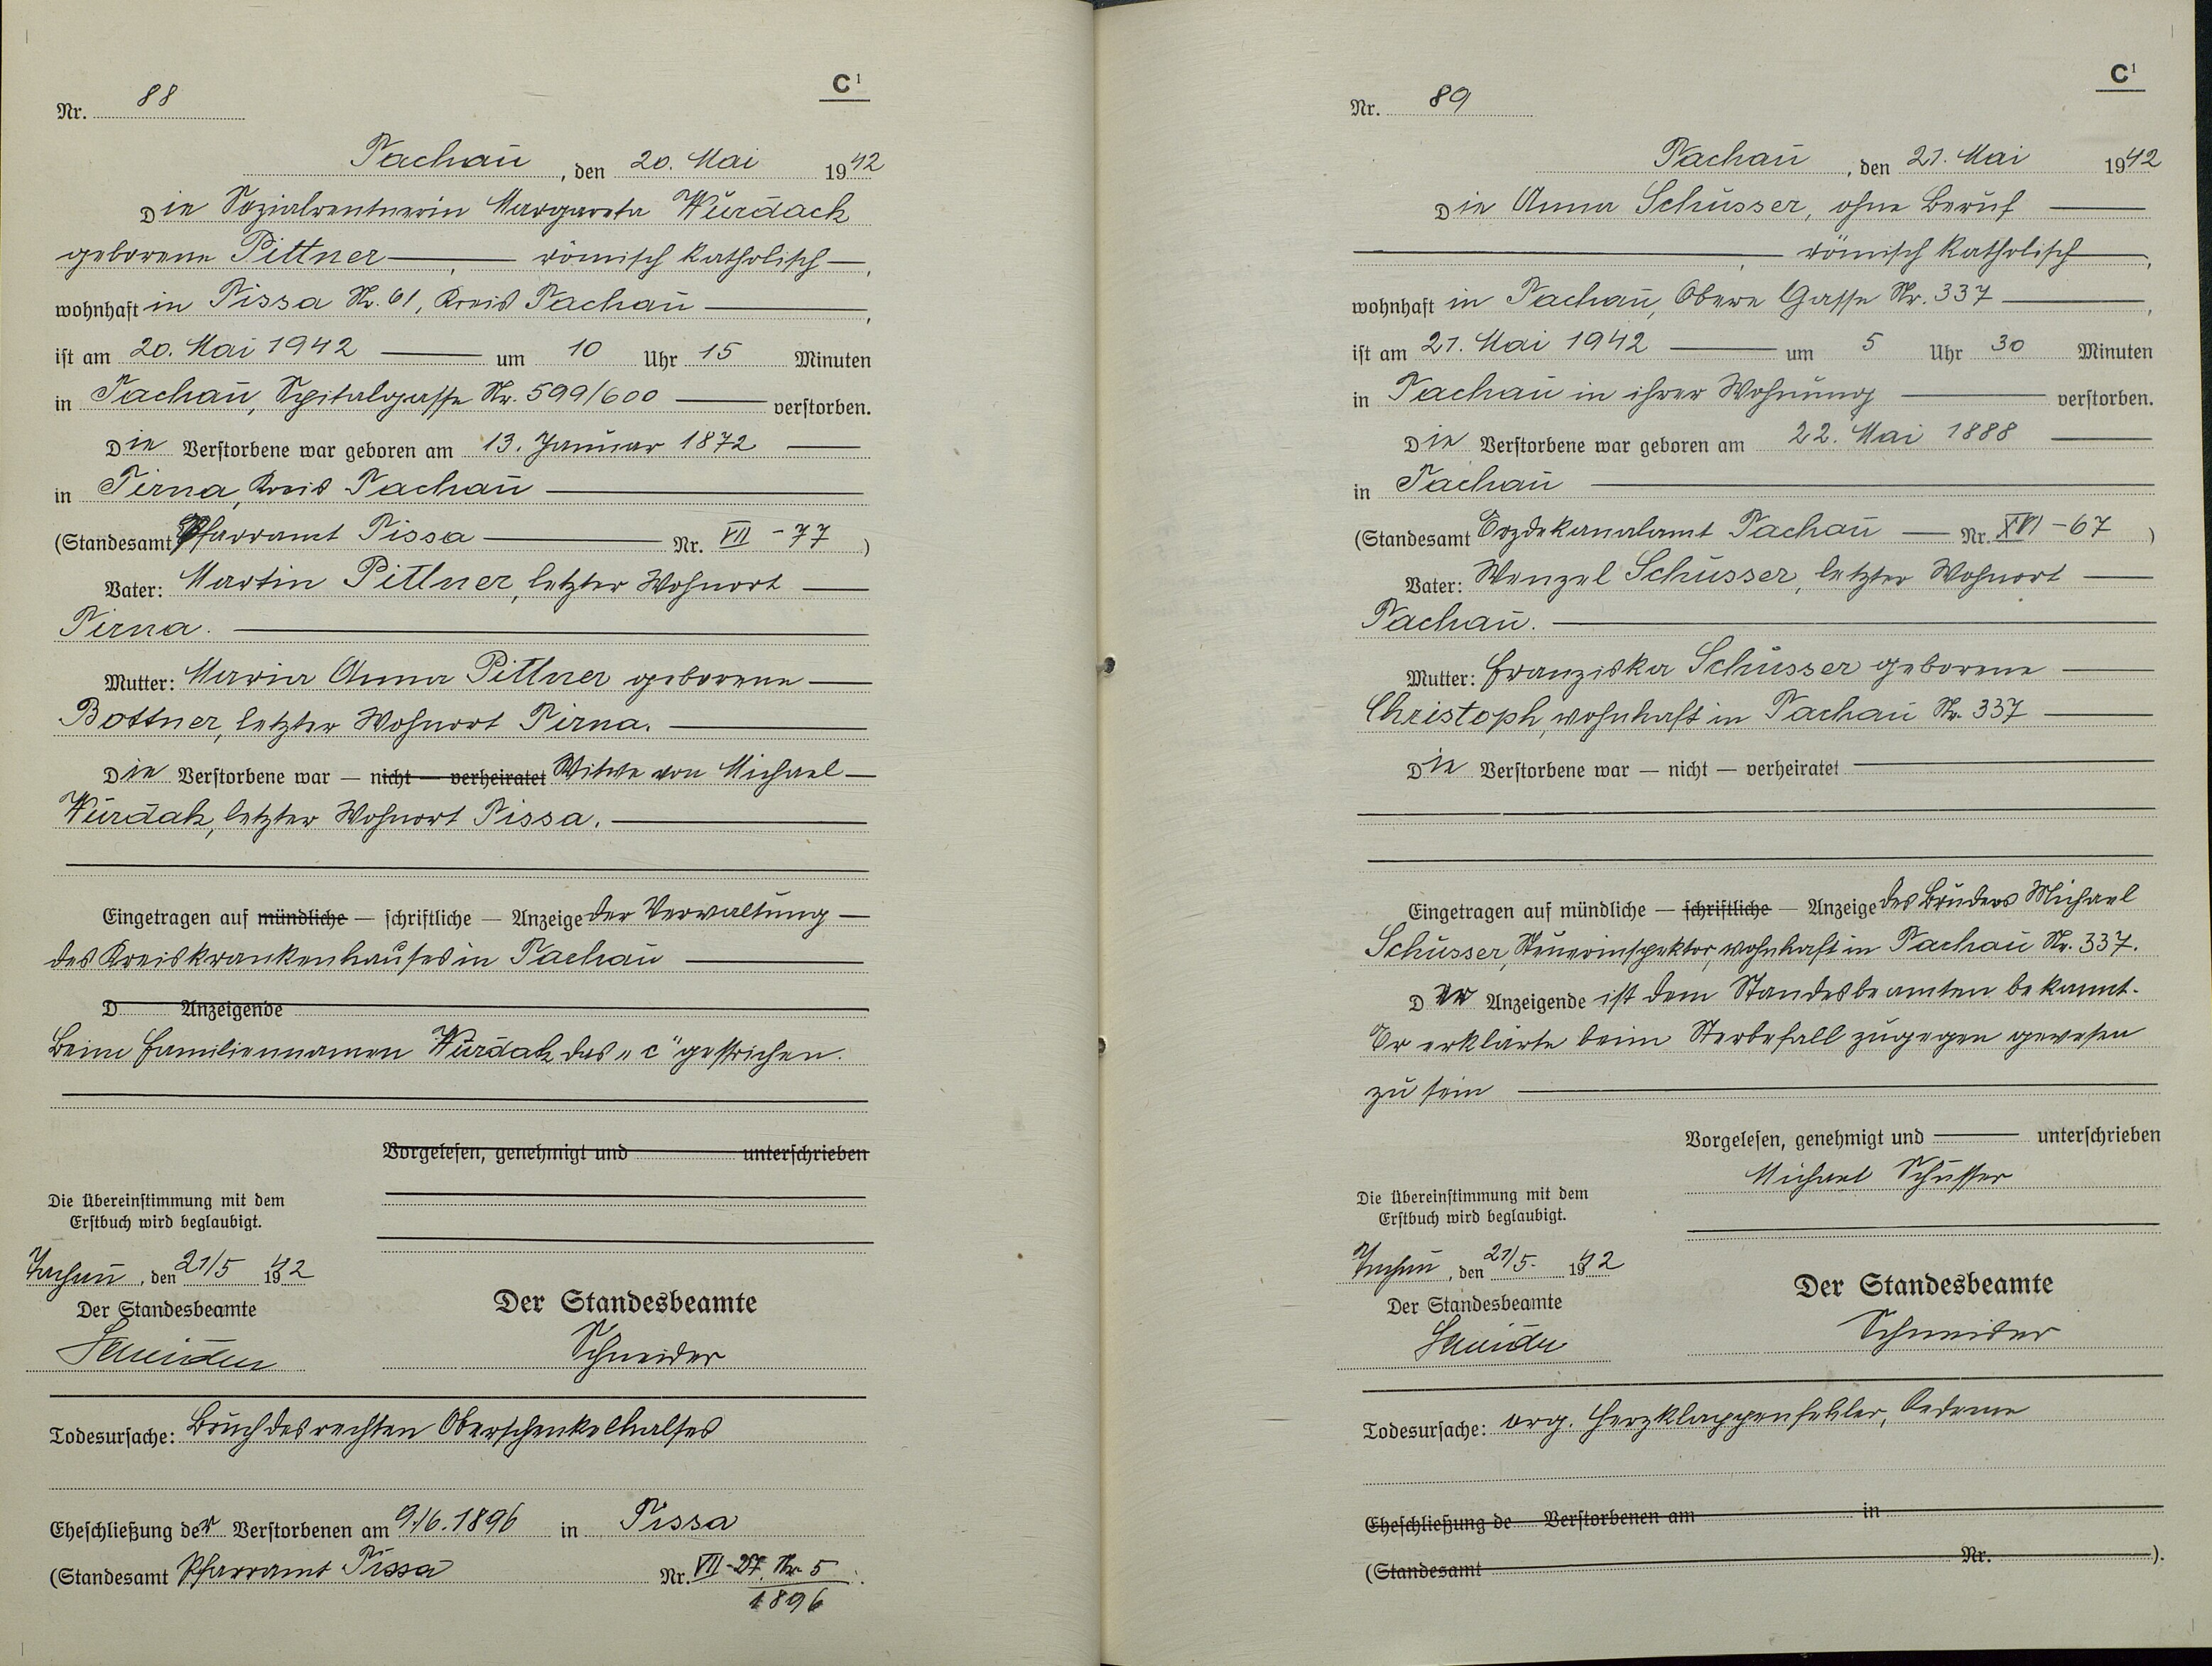 C¹
Nr. 88
Tachau, den 20. Mai 1942
Die Sozialrentnerin Margareta Würdach
geborene Pittner —, — römisch katholisch —,
wohnhaft in Tissa Nr. 61, Kreis Tachau —,
ist am 20. Mai 1942 — um 10 Uhr 15 Minuten
in Tachau, Spitalgasse Nr. 599/600 — verstorben.
Die Verstorbene war geboren am 13. Januar 1872 —
in Tirna, Kreis Tachau —
(Standesamt Pfarramt Tissa — Nr. VII - 77)
Vater: Martin Pittner, letzter Wohnort —
Tirna. —
Mutter: Maria Anna Pittner geborene —
Bottner, letzter Wohnort Tirna. —
Die Verstorbene war — nicht — verheiratet Witwe von Michael —
Würdak, letzter Wohnort Tissa. —
Eingetragen auf mündliche — schriftliche — Anzeige der Verwaltung —
des Kreiskrankenhauses in Tachau —
D Anzeigende
Beim Familiennamen Würdak das „c“ gestrichen.
Vorgelesen, genehmigt und unterschrieben
Die Übereinstimmung mit dem
Erstbuch wird beglaubigt.
Tachau, den 21/5 1942
Der Standesbeamte
Schneider
Der Standesbeamte
Schneider
Todesursache: Bruch des rechten Oberschenkelhalses
Eheschließung der Verstorbenen am 9./6. 1896 in Tissa
(Standesamt Pfarramt Tissa Nr. VII-27. Nr. 5
1896
C¹
Nr. 89
Tachau, den 21. Mai 1942
Die Anna Schusser, ohne Beruf —
—, — römisch katholisch —,
wohnhaft in Tachau, Obere Gasse Nr. 337 —,
ist am 21. Mai 1942 — um 5 Uhr 30 Minuten
in Tachau in ihrer Wohnung — verstorben.
Die Verstorbene war geboren am 22. Mai 1888 —
in Tachau —
(Standesamt Erzdekanalamt Tachau — Nr. XVI - 67)
Vater: Wenzel Schusser, letzter Wohnort —
Tachau. —
Mutter: Franziska Schusser geborene —
Christoph, wohnhaft in Tachau Nr. 337 —
Die Verstorbene war — nicht — verheiratet —
Eingetragen auf mündliche — schriftliche — Anzeige des Bruders Michael
Schusser, Steuerinspektor, wohnhaft in Tachau Nr. 337.
Der Anzeigende ist dem Standesbeamten bekannt.
Er erklärte beim Sterbefall zugegen gewesen
zu sein —
Vorgelesen, genehmigt und — unterschrieben
Michael Schusser
Die Übereinstimmung mit dem
Erstbuch wird beglaubigt.
Tachau, den 21/5. 1942
Der Standesbeamte
Schneider
Der Standesbeamte
Schneider
Todesursache: org. Herzklappenfehler, Oedeme
Eheschließung de Verstorbenen am in
(Standesamt Nr. ).